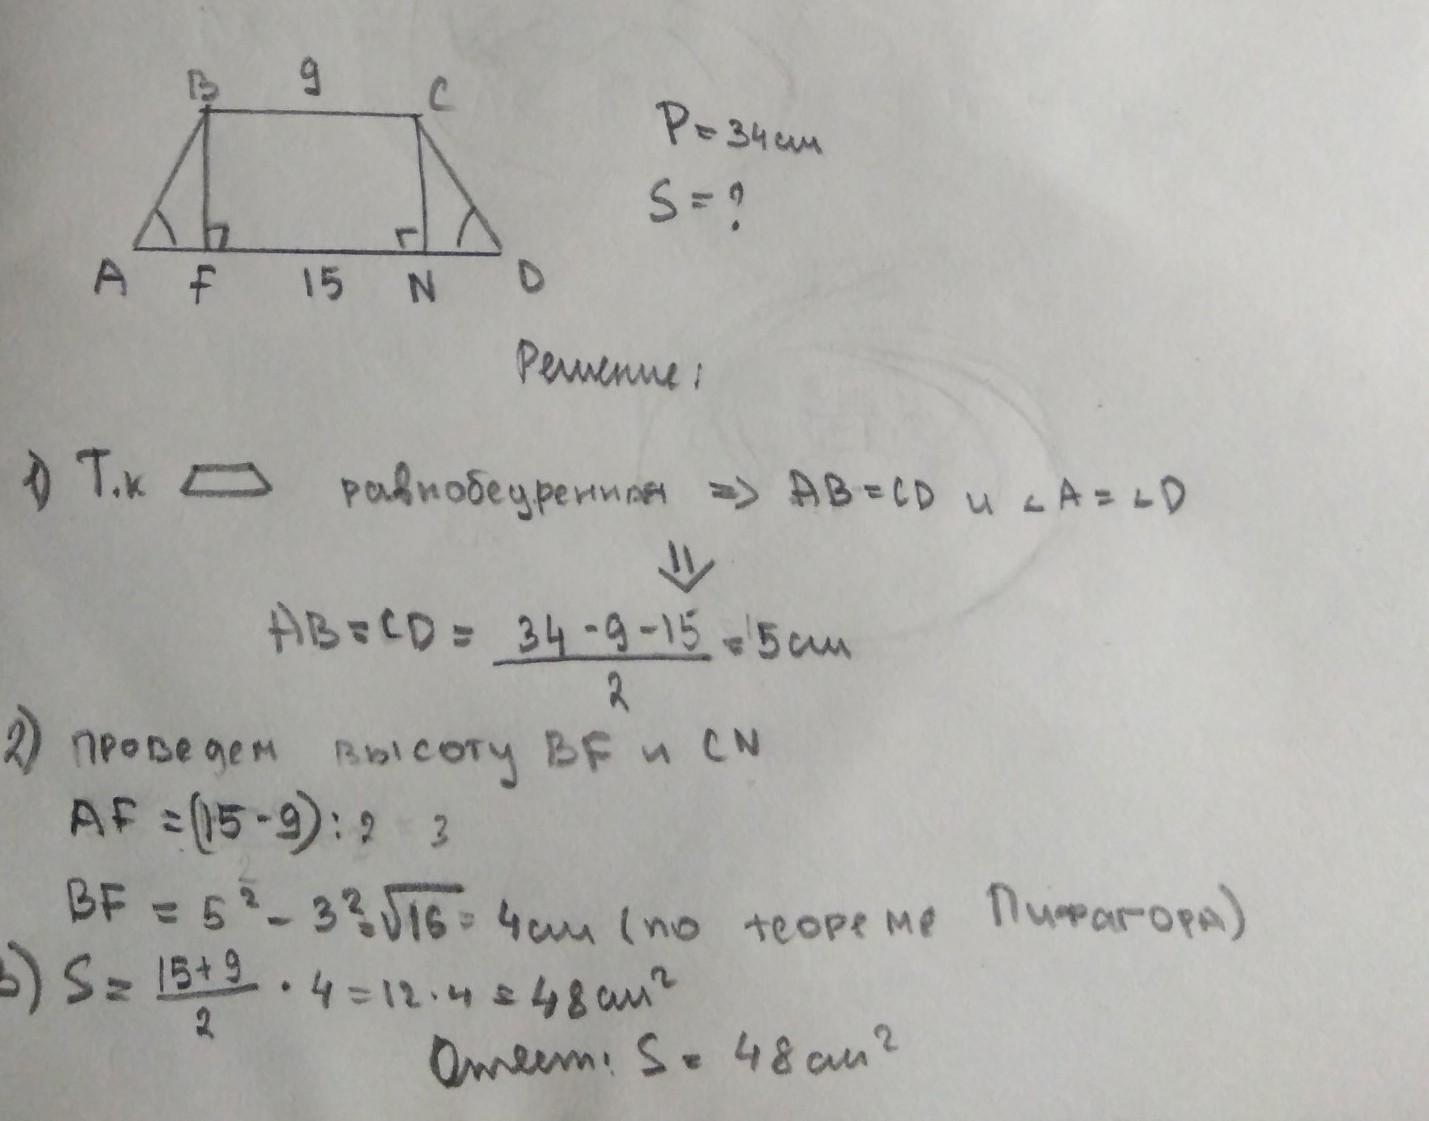 B 9 C
P = 34 см
S = ?
A F 15 N D
Решение:
1) Т.к равнобедренная => AB = CD и ∠A = ∠D
⇓
AB = CD = \frac{34 - 9 - 15}{2} = 5 см
2) проведем высоту BF и CN
AF = (15 - 9) : 2 = 3
BF = 5² - 3² = √16 = 4 см (по теореме Пифагора)
3) S = \frac{15 + 9}{2} · 4 = 12 · 4 = 48 см²
Ответ: S = 48 см²